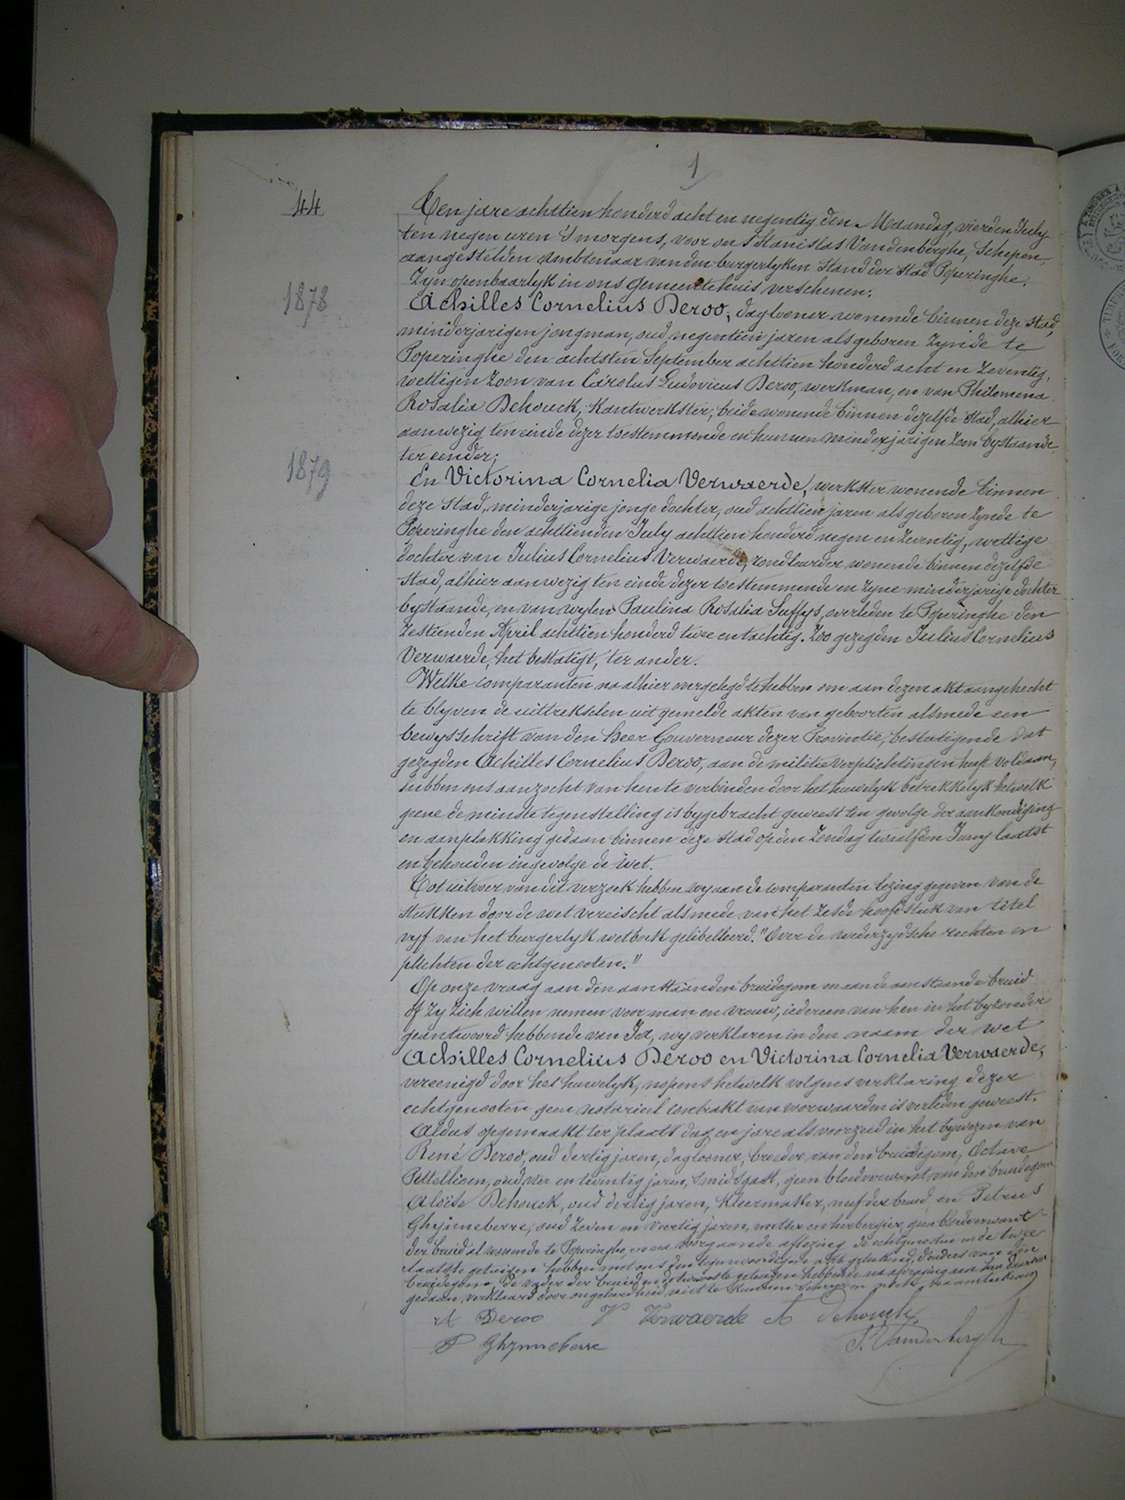 1
44
Ten jare achttien honderd acht en negentig den Maandag, vierden July
ten negen uren 's morgens, voor ons Stanislas Vandenberghe, Schepen,
aangestelden ambtenaar van den burgerlyken Stand der Stad Poperinghe.
Zyn openbaarlyk in ons gemeentehuis verschenen:
1878
Achilles Cornelius Deroo, daglooner wonende binnen deze stad,
minderjarigen jongman, oud negentien jaren als geboren zynde te
Poperinghe den achtsten September achttien honderd acht en zeventig,
wettigen zoon van Carolus Ludovicus Deroo, werkman, en van Philomena
Rosalia Dehouck, kantwerkster, beide wonende binnen dezelfde stad, alhier
aanwezig ten einde dezer toestemmende en hunnen minderjarigen zoon bystaande
ter eender;
1879
En Victorina Cornelia Verwaerde, werkster wonende binnen
deze stad, minderjarige jonge dochter, oud achttien jaren als geboren zynde te
Poperinghe den achttienden July achttien honderd negen en zeventig, wettige
dochter van Julius Cornelius Verwaerde, wonende binnen dezelfde
stad, alhier aanwezig ten einde dezer toestemmende en zyne minderjarige dochter
bystaande, en van wylen Paulina Rosalia Suffys, overleden te Poperinghe den
zestienden April achttien honderd twee en tachtig. Zoo gezegden Julius Cornelius
Verwaerde, het bestatigt, ter ander.
Welke comparanten na alhier overgelegd te hebben om aan dezen akt aangehecht
te blyven de uittrekselen uit gemelde akten van geboorten alsmede een
bewysschrift van den Heer Gouverneur dezer Provincie, bestatigende dat
gezegden Achilles Cornelius Deroo, aan de militie verplichtingen heeft voldaan,
hebben ons aanzocht van hen te verbinden door het huwelyk betrekkelyk hetwelk
geene de minste tegenstelling is bygebracht geweest ten gevolge der aankondiging
en aanplakking gedaan binnen deze stad op den Zondag twaalfden Juny laatst
en gehouden ingevolge de wet.
Tot uitvoer van dit verzoek hebben wy aan de comparanten lezing gegeven van de
stukken door de wet vereischt alsmede van het zesde hoofdstuk van titel
vyf van het burgerlyk wetboek gelibelleerd "Over de wederzydsche rechten en
plichten der echtgenooten."
Op onze vraag aan den aanstaanden bruidegom en aan de aanstaande bruid
of zy zich willen nemen voor man en vrouw, iedereen van hen in het byzonder
geantwoord hebbende van Ja, wy verklaren in den naam der wet
Achilles Cornelius Deroo en Victorina Cornelia Verwaerde,
vereenigd door het huwelyk, nopens hetwelk volgens verklaring dezer
echtgenooten geen notarieel contrakt van voorwaarden is verleden geweest.
Aldus opgemaakt ter plaats dag en jare als voorzeid in het bywezen van
René Deroo, oud dertig jaren, daglooner, broeder van den bruidegom, Octave
oud en twintig jaren, smidsgast, geen bloedverwant van den bruidegom
Aloïse Dehouck, oud dertig jaren, kleermaker, neef der bruid, en Petrus
Ghyneberre, oud zeven en veertig jaren, en herbergier, geen bloedverwant
der bruid al wonende te Poperinghe, en na voorgaande aflezing de echtgenooten en de twee
laatste getuigen hebben met ons den tegenwoordigen akt geteekend, d'ouders van den
bruidegom, de vader der bruid en de twee eerste getuigen hebbende na afvraging aan hen
gedaan, verklaard door ongeleerdheid niet te kunnen schryven
A Deroo V Verwaerde A Dehouck
P Ghyneberre S. Vandenberghe